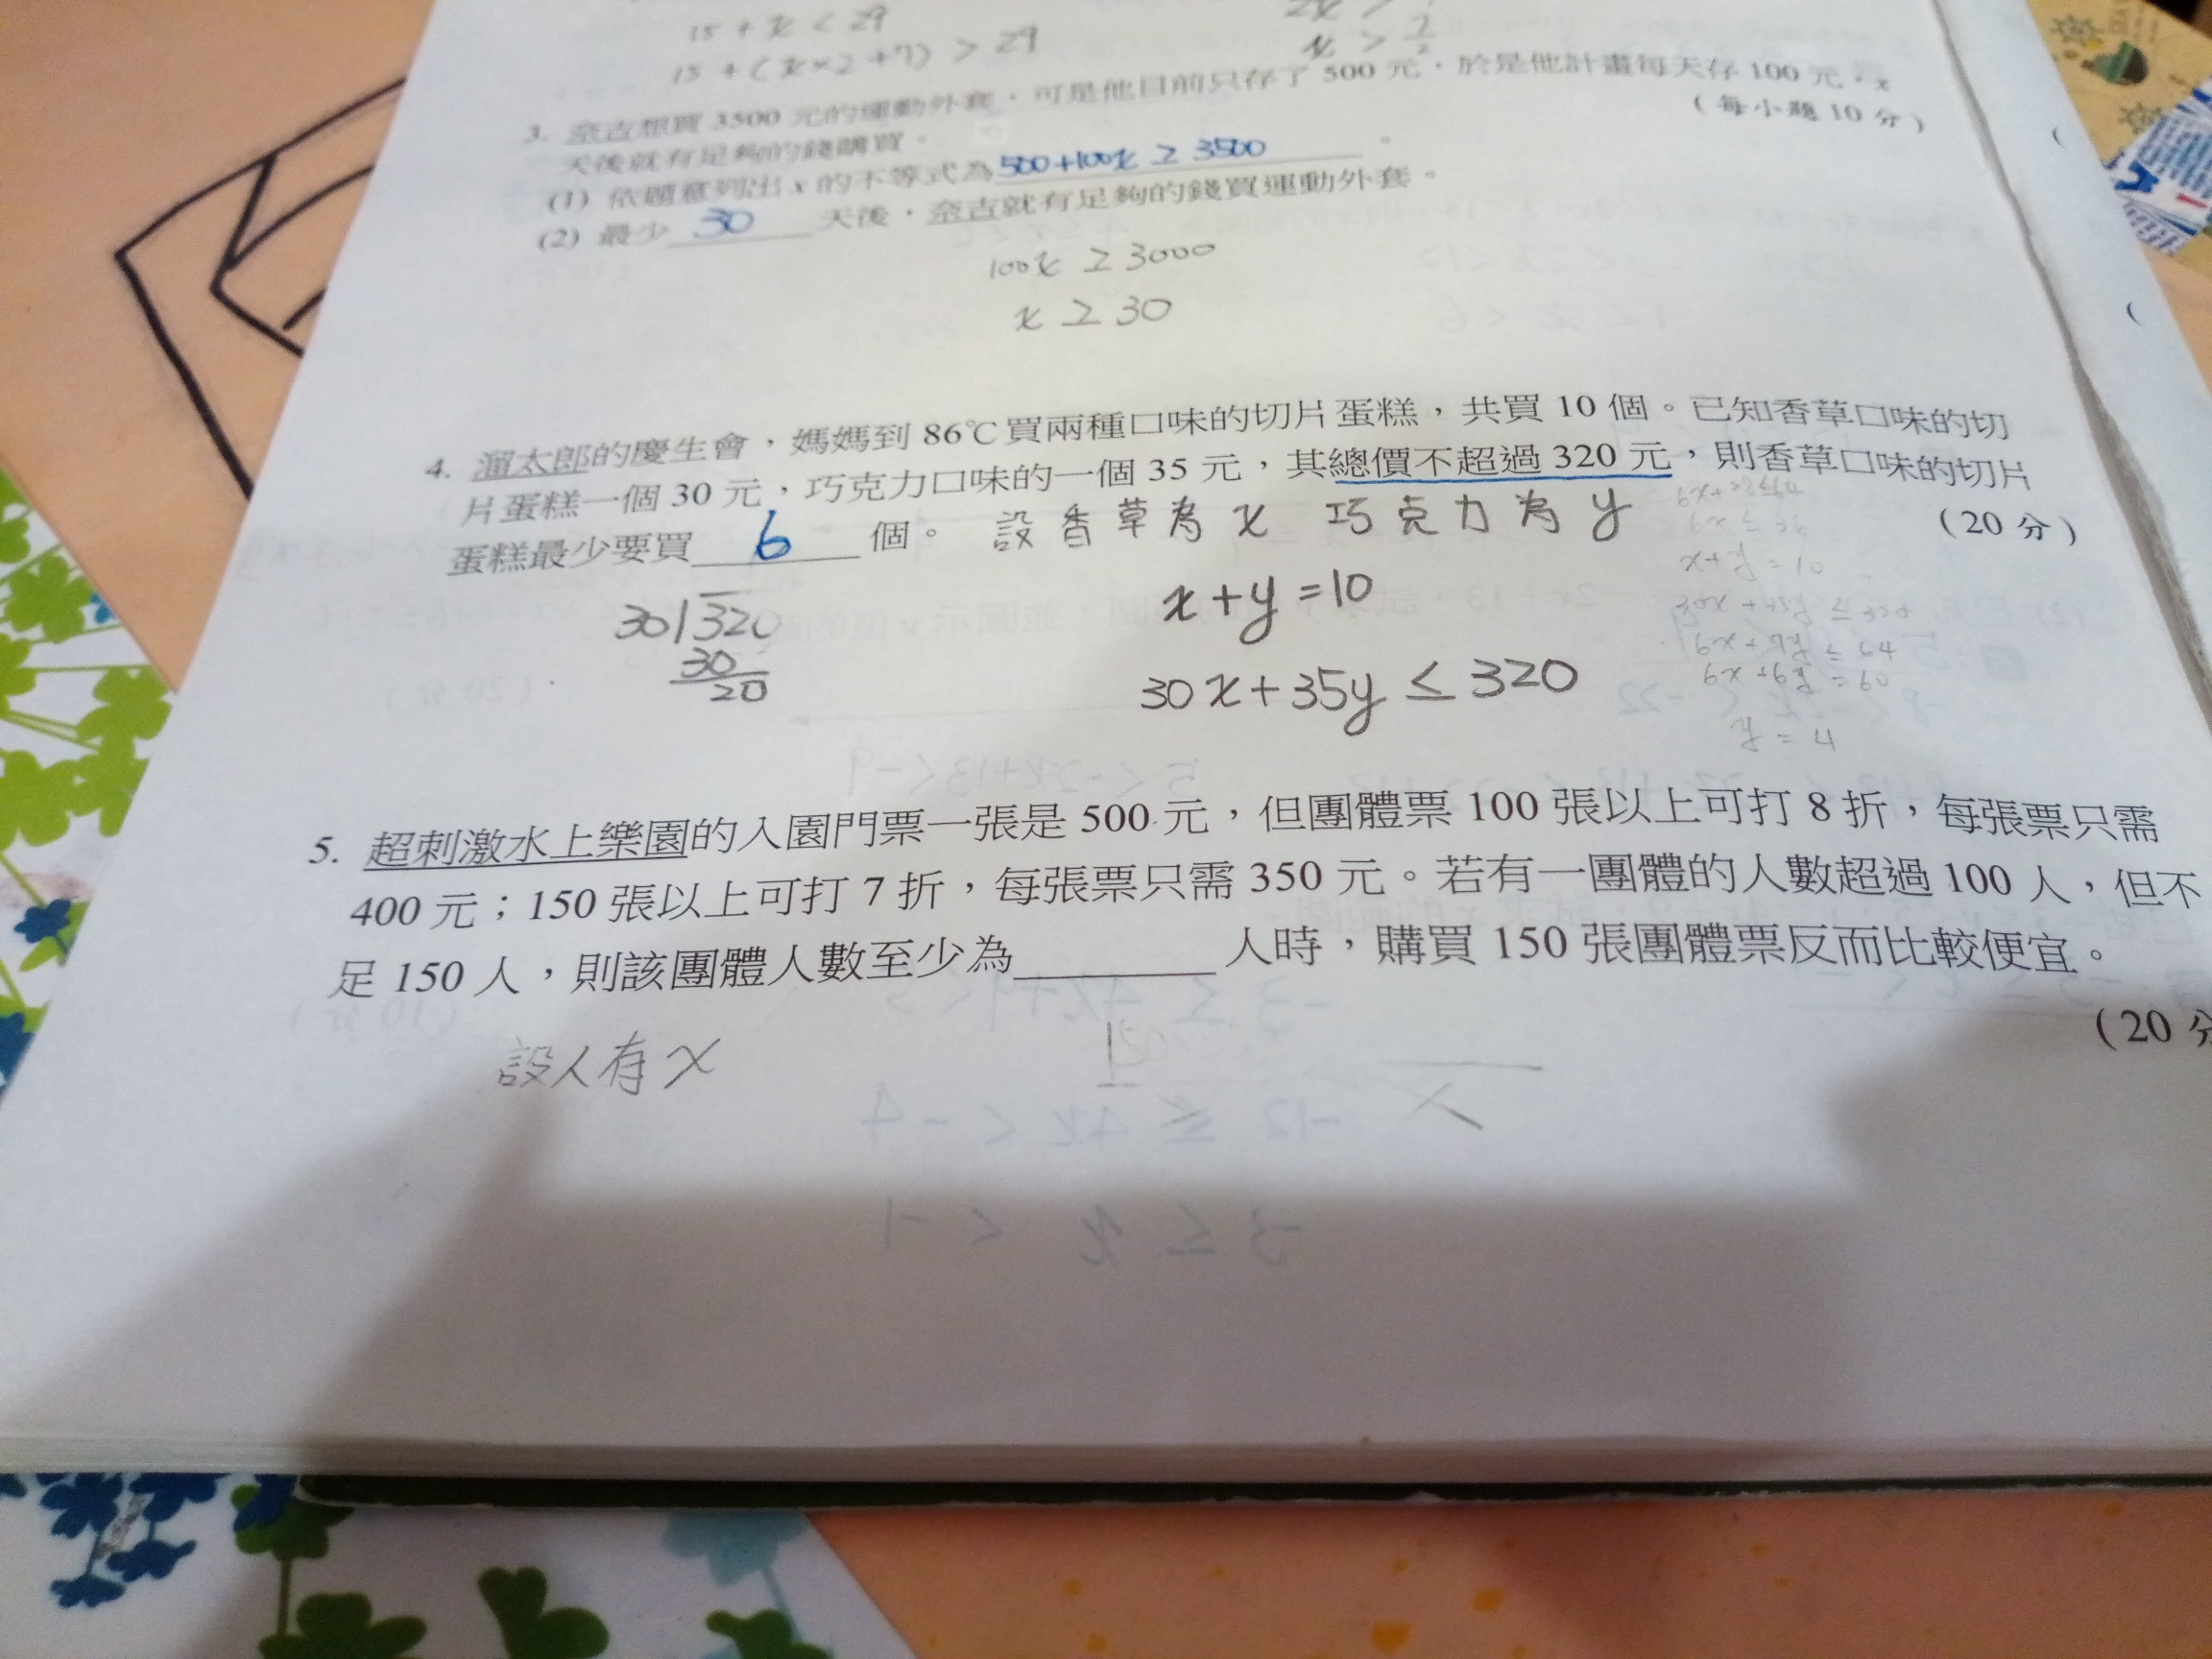 15 + x < 29
15 + (x×2+7) > 29
2x >
x > 7/2
3. 奈吉想買 3500 元的運動外套，可是他目前只存了 500 元，於是他計畫每天存 100 元，x
天後就有足夠的錢購買。
(每小題 10 分)
(1) 依題意列出 x 的不等式為 500+100x ≥ 3500 。
(2) 最少 30 天後，奈吉就有足夠的錢買運動外套。
100x ≥ 3000
x ≥ 30
4. 溜太郎的慶生會，媽媽到 86℃ 買兩種口味的切片蛋糕，共買 10 個。已知香草口味的切
片蛋糕一個 30 元，巧克力口味的一個 35 元，其總價不超過 320 元，則香草口味的切片
蛋糕最少要買 6 個。
(20 分)
設香草為 x 巧克力為 y
x+y=10
30x+35y ≤ 320
30 320
30
20
x+y=10
30x+35y ≤ 320
6x+7y ≤ 64
6x+6y = 60
y = 4
5. 超刺激水上樂園的入園門票一張是 500 元，但團體票 100 張以上可打 8 折，每張票只需
400 元；150 張以上可打 7 折，每張票只需 350 元。若有一團體的人數超過 100 人，但不
足 150 人，則該團體人數至少為________人時，購買 150 張團體票反而比較便宜。
(20 分
設人有 x